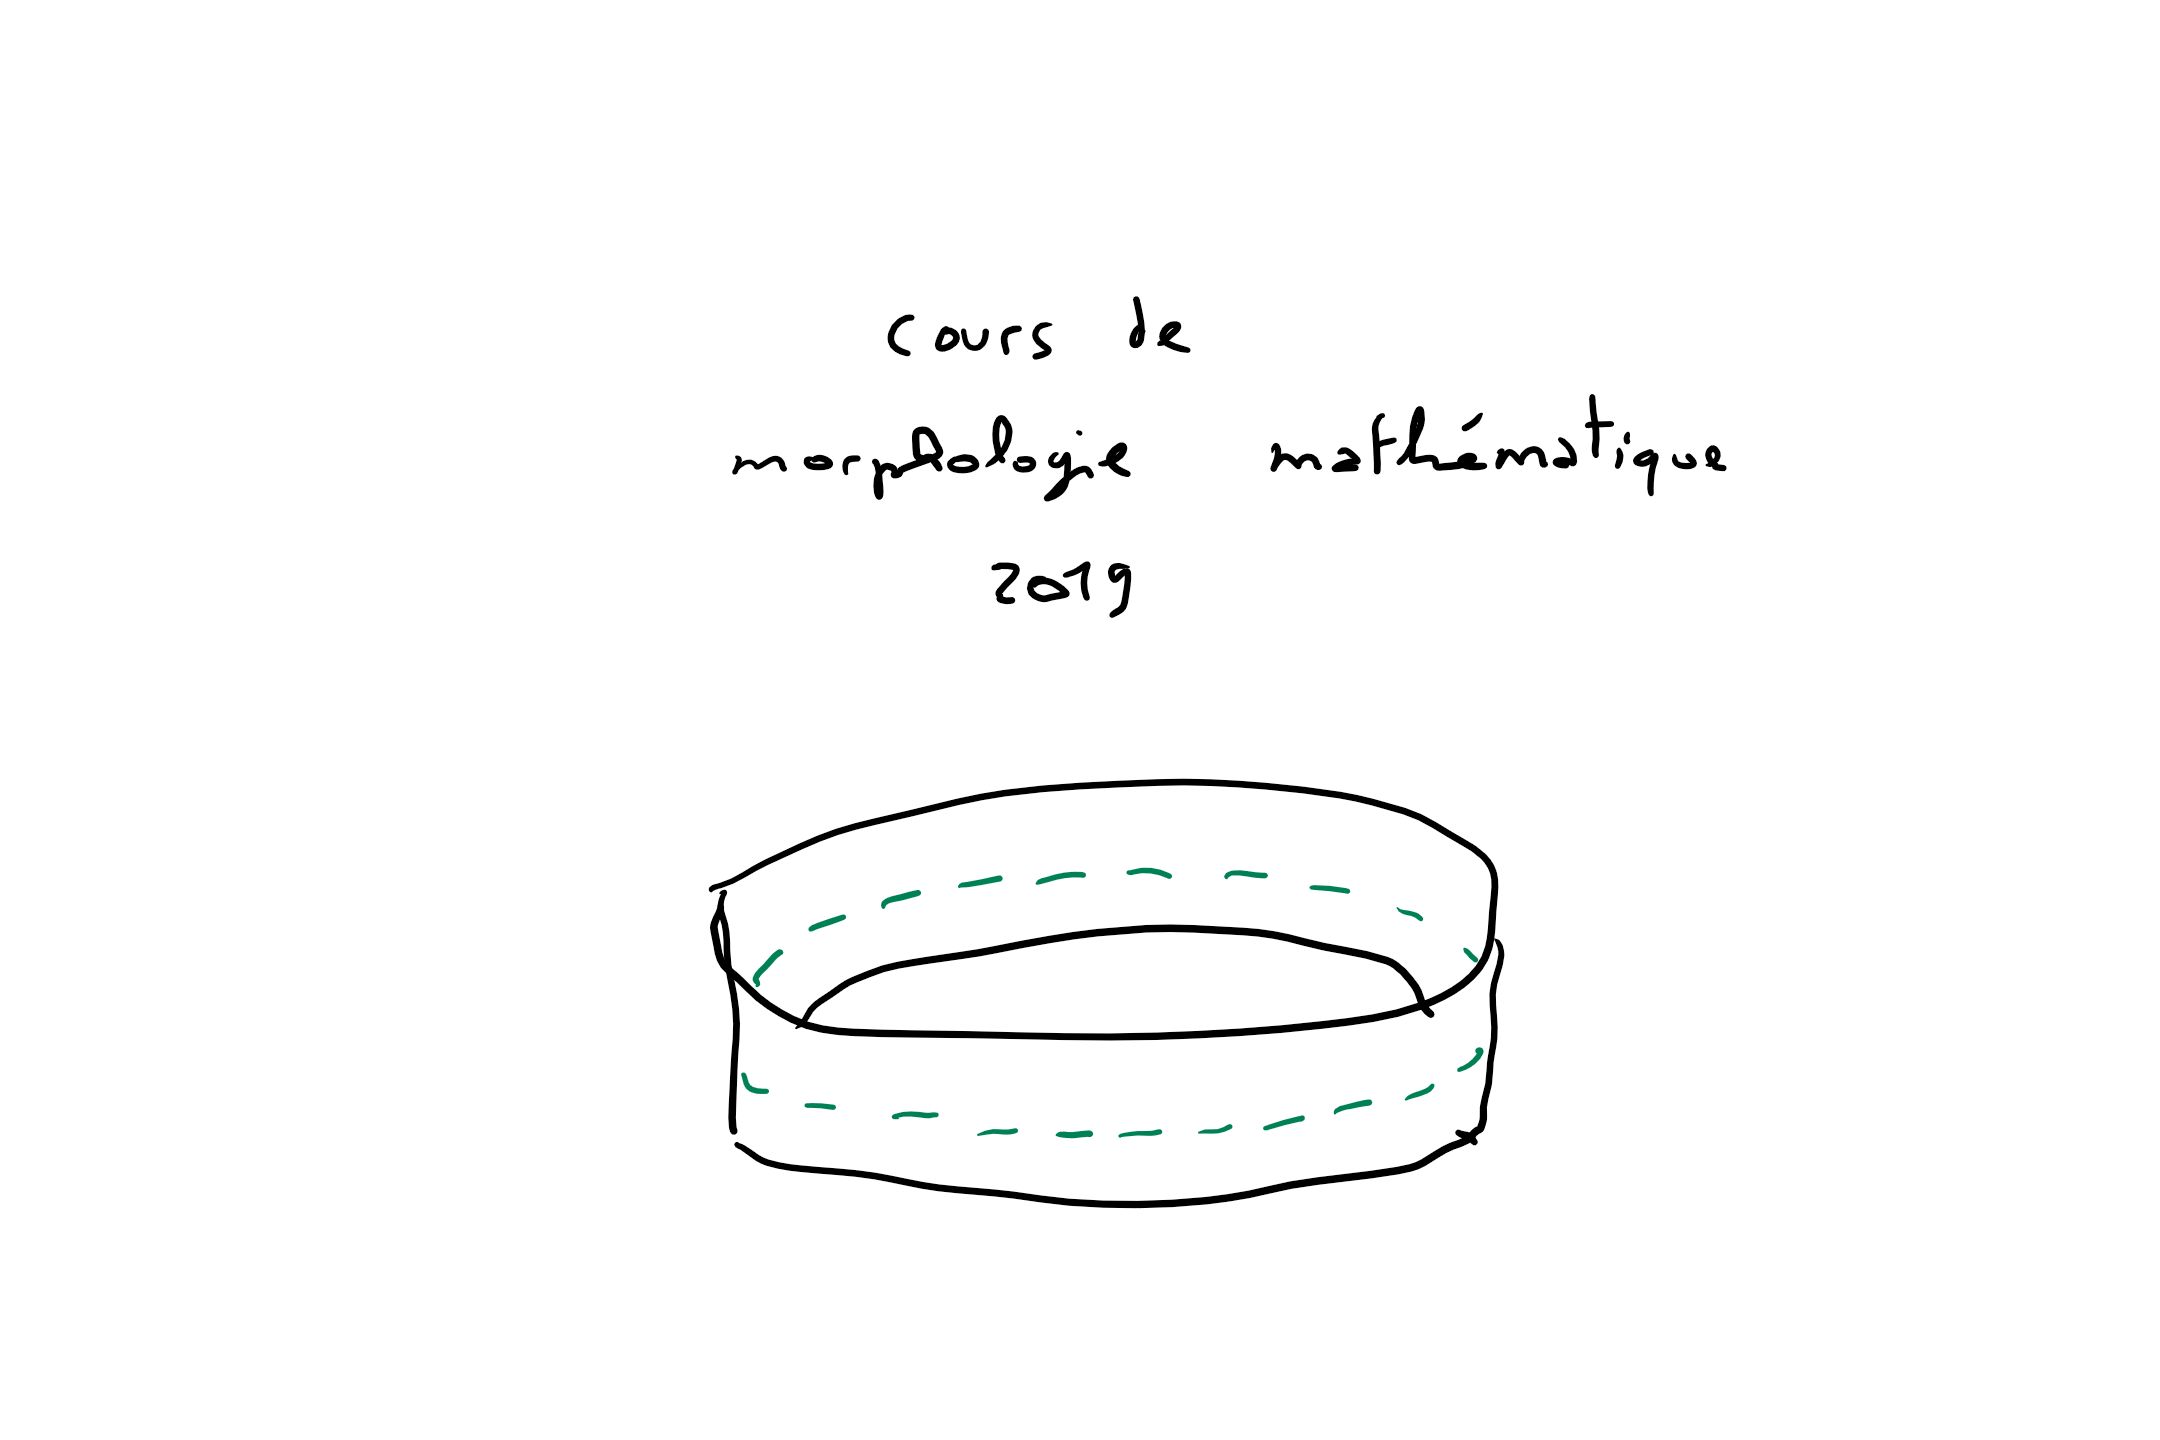 cours de
morphologie mathématique
2019